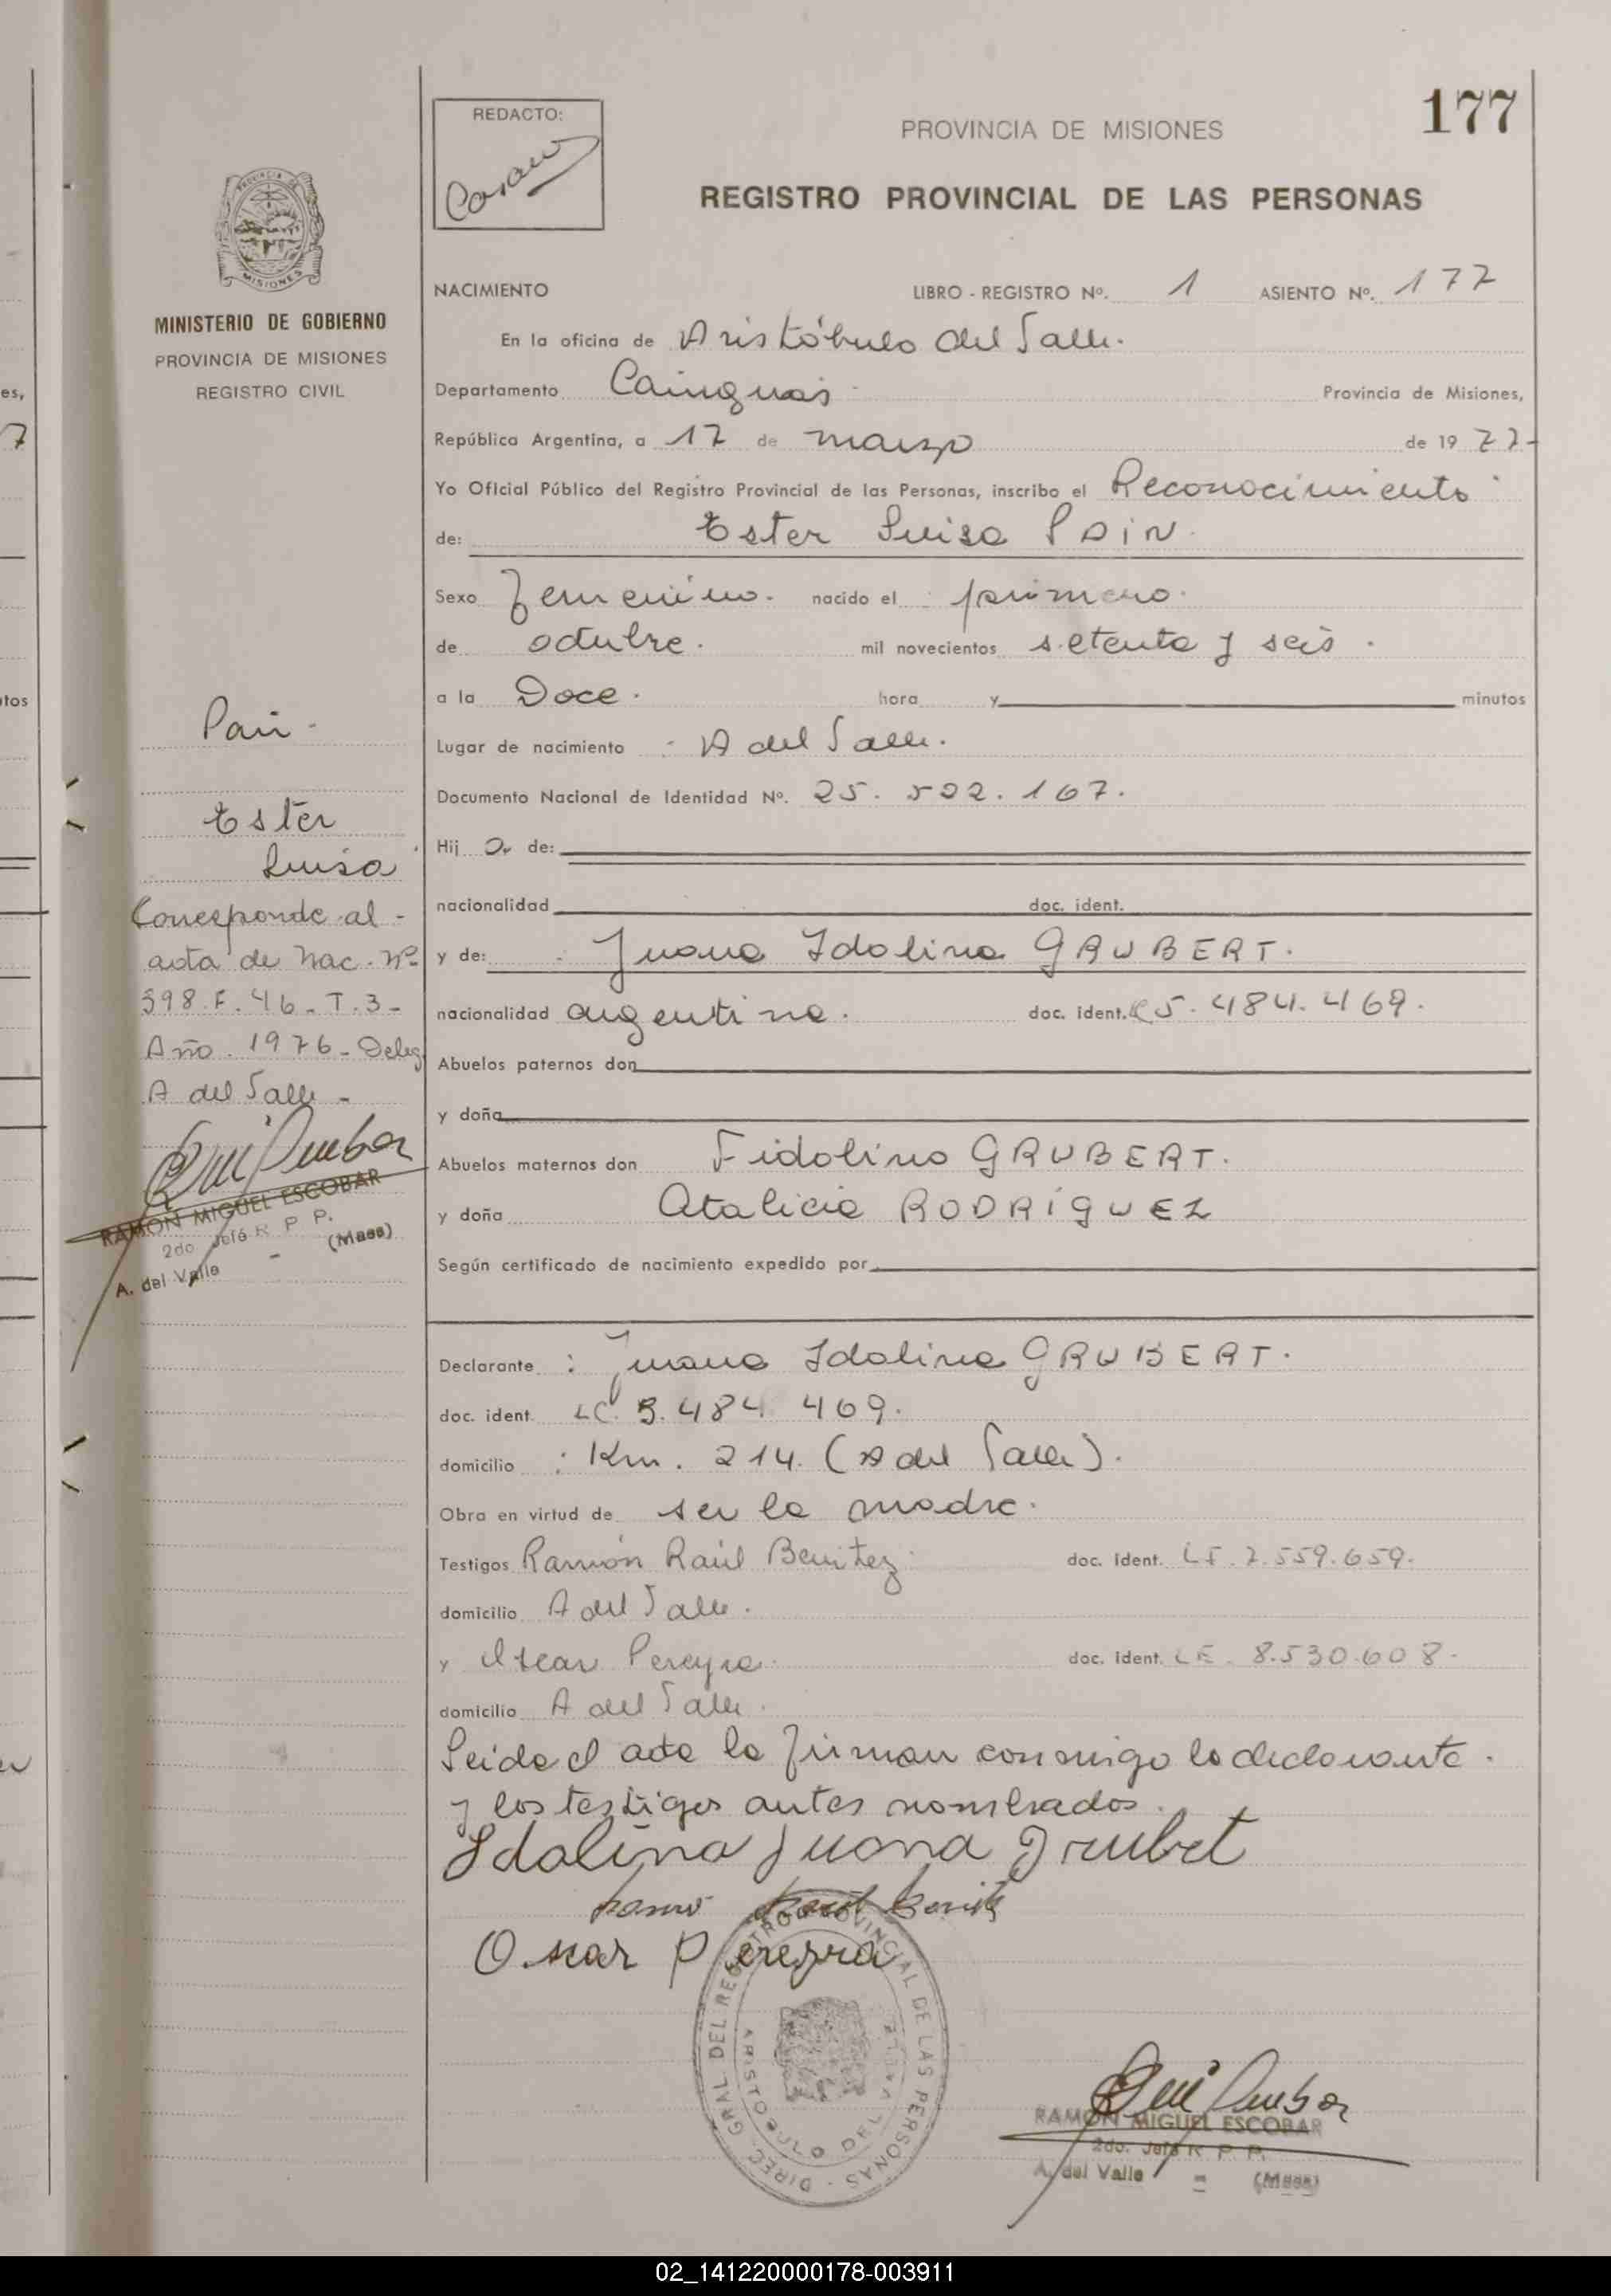 177
REDACTO:
PROVINCIA DE MISIONES
REGISTRO PROVINCIAL DE LAS PERSONAS
MINISTERIO DE GOBIERNO
PROVINCIA DE MISIONES
REGISTRO CIVIL
NACIMIENTO LIBRO - REGISTRO Nº. 1 ASIENTO Nº. 177
En la oficina de Aristóbulo del Valle.
Departamento Cainguás Provincia de Misiones,
República Argentina, a 17 de marzo de 1977-
Yo Oficial Público del Registro Provincial de las Personas, inscribo el Reconocimiento
de: Ester Luisa PAIN.
Sexo Femenino. nacido el primero.
de octubre. mil novecientos setenta y seis.
a la Doce. hora y minutos
Lugar de nacimiento A del Valle.
Documento Nacional de Identidad Nº. 25.502.167.
Hij a de:
nacionalidad doc. ident.
y de: Juana Idolina GRUBERT.
nacionalidad argentina. doc. ident. 5.484.469.
Abuelos paternos don
y doña
Abuelos maternos don Fidolino GRUBERT.
y doña Atalicia RODRÍGUEZ
Según certificado de nacimiento expedido por
Declarante : Juana Idolina GRUBERT.
doc. ident. LC. 5.484.469.
domicilio : Km. 214. (A del Valle).
Obra en virtud de ser la madre.
Testigos Ramón Raúl Benitez doc. ident. 7.559.659.
domicilio A del Valle.
y Oscar Pereyra doc. ident. LE. 8.530.608.
domicilio A del Valle.
Leida el acta la firman conmigo la declarante.
y los testigos antes nombrados.
Idolina Juana Grubet
Oscar Pereyra
DIREC. GRAL. DEL REGISTRO PROVINCIAL DE LAS PERSONAS
ARISTOBULO DEL VALLE
RAMON MIGUEL ESCOBAR
2do. Jefe R P P.
A. del Valle - (Mnes)
Pain-
Ester
Luisa
Corresponde al -
acta de Nac. Nº
398.F.46-T.3-
Año 1976-Deleg
A del Valle -
RAMON MIGUEL ESCOBAR
2do Jefe R P P.
A. del Valle - (Mnes)
02_141220000178-003911